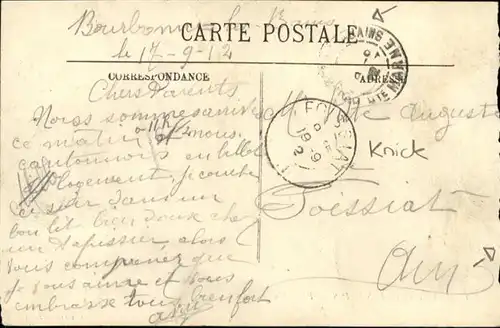 Bourbonne les Bains
CARTE POSTALE
le 17-9-12
CORRESPONDANCE
Chers Parents
Nous sommes arrivés
ce matin à 11 h nous
cantonnons en billet
logement je couche
ce soir dans un
bon lit bien doux chez
un tapissier alors
vous comprenez que
je vous aime et vous
embrasse tous bien fort
Auguste
Knick
Foissiat
Ain
BAINS
HTE MARNE
FOISSIAT